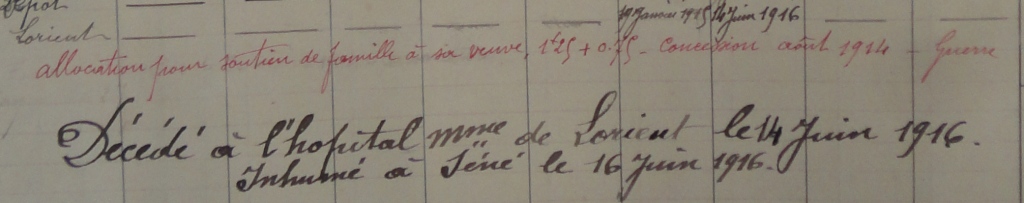 Dépot
Lorient 19 Janvier 1915 14 Juin 1916
allocation pour soutien de famille à sa veuve, 1f25 + 0.75 - concession août 1914 - Guerre
Décédé à l'hopital mme de Lorient le 14 Juin 1916.
Inhumé à Séné le 16 Juin 1916.